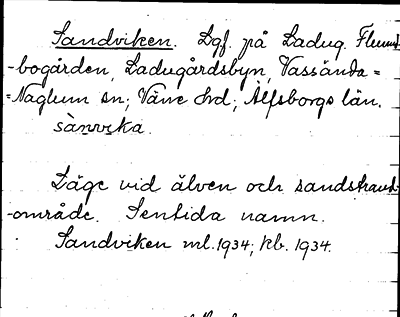 Sandviken. Lgf. på Ladug. Flund-
-bogården, Ladugårdsbyn, Vassända=
=Naglum sn; Väne hrd; Älfsborgs län.
sànvika.
Läge vid älven och sandstrand-
-område. Sentida namn.
Sandviken ml. 1934; kb. 1934.